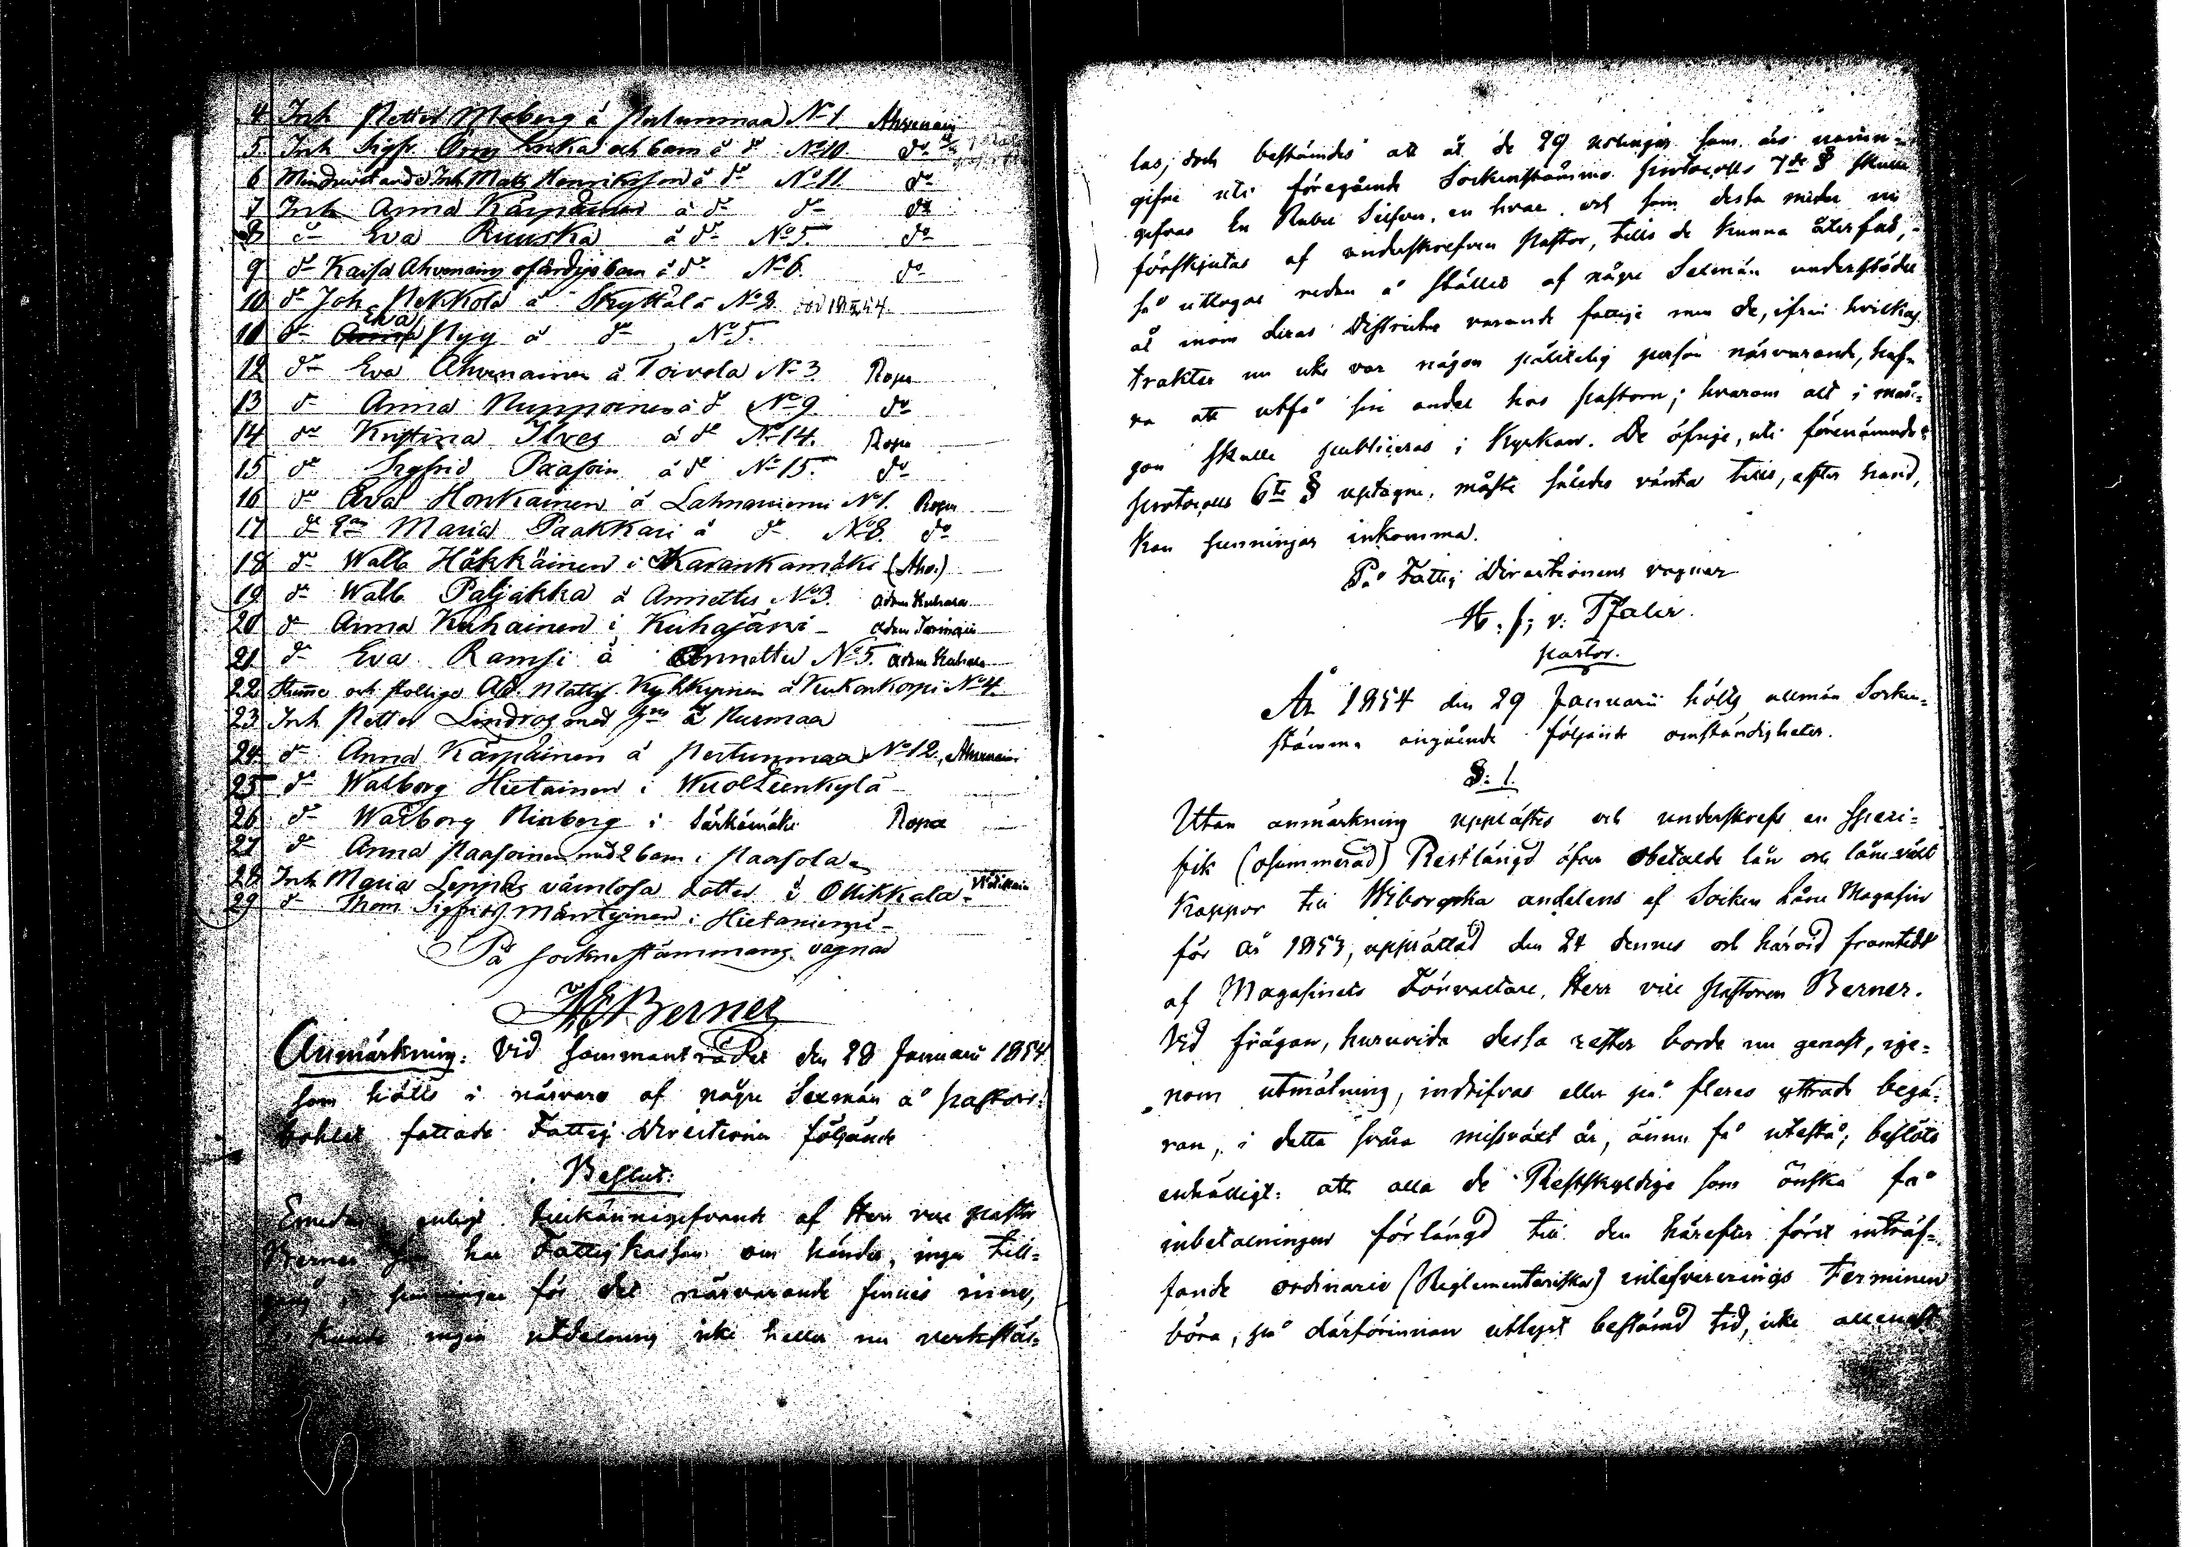 4 Inh Petter Moberg å Pertunmaa No 1. Ahvenain
5 Inh Sigfr. Enka och barn å do No 10. do
6 Mindrevetande Inh Mats Henriksson å do No 11. do
7 Inh Anna Kärpänen å do do do
8 do Eva Ruuska å do No 5. do
9 do Kaisa Ahvenains ofärdige barn å do No 6. do
10 do Joh Pekkola å Skyttälä No 2.
11 do Eva Nyg å do No 5.
12 do Eva Ahvenainen å Toivola No 3. Ropa
13 do Anna Nupponen å do No 9. do
14 do Kristina Ilves å do No 14. Ropa
15 do Sigfrid Paasoin å do No 15. do
16 do Eva Honkainen å Lahnaniemi No 1. Ropa
17 do Maria Paakkari å do No 8. do
18 do Walb Häkkäinen i Karankamäki (Aho.)
19 do Walb Paljakka å Annettu No 3. Adam Kuhain
20 do Anna Kuhainen i Kuhajärvi - Adam
21 do Eva Ramsi å Annettu No 5. Adam Kuhain
22 Stumme och stollige Ad. Matts. Kykkyrinen å Kukonkorpi No 4.
23 Inh Petter Lindros med å Kurmaa
24 do Anna Kärpäinen å Pertunmaa No 12. Ahvenain
25 do Walborg Hietainen i Wuoltienkylä -
26 do Walborg Kinberg i Särkämäki Ropa
27 do Anna Paasoinen med 2 barn i Paasola -
28 Inh Maria Leppäs vanlösa dotter i Ollikkala -
29 do Thom Sigfridss. Mäntyinen i Hietaniemi -
På sockenstämmans vägnar
Berner
Anmärkning: Vid sammanträdet den 28 Januari 1854
som hölls i närvaro af någre Sexmän å Pastors-
bohlet fattade Fattig Directionen följande
Beslut:
Emedan enligt tillkännagifvande af Herr vice Pastor
Berner som har Fattigkassan om händer, inga till-
gång i penningar för det närvarande finnes inne,
så kunde ingen utdelning icke heller nu verkstäl-
las; doch bestämdes att åt de 29 uslingar som äro namn-
gifne uti föregående Sockenstämmo Protocolls 7de § skulle
gifvas En Rubel Silfver, en hvar, och som dessa medel nu
förskjutas af undeskrefven Pastor, tills de kunna återfås,
så uttogos redan å stället af någre Sexmän understöden
åt inom deras Districter varande fattige men de, ifrån hvilkas
trakter nu icke var någon pålitelig person närvarande, haf-
va att utfå sin andel hos Pastorn; hvarom allt i mor-
gon skulle publiceras i Kyrkan. De öfrige, uti förenämnde
Protocolls 6te § uptagne, måste således vänta tills, efter hand,
kan penningar inkomma.
På Fattig Directionens vägnar
H. J. v. Pfaler.
Pastor.
År 1854 den 29 Januarii hölts allmän Socken-
stämma angående följande omständigheter.
§. 1.
Utan anmärkning upplästes och underskrefs en Speci-
fik (osummerad) Restlängd öfver obetalde lån och låneväxt
Kappor till Wiborgska andelens af Socken Låne Magasin
för år 1853, upprättad den 24 dennes och härvid framtedd
af Magasinets Förvaltare, Herr vice Pastoren Berner.
Vid frågan, huruvida dessa rester borde nu genast, ige-
nom utmätning, indrifvas eller på fleres yttrade begä-
ran, i detta svåra missväxt år, ännu få utestå; beslöts
enhälligt: att alla de Restskyldige som önska få
inbetalningen förlängd till den härefter först inträf-
fande ordinarie (Reglementariska) inlefvererings Terminen
böra, på därförinnan utlyst bestämd tid, icke allenast